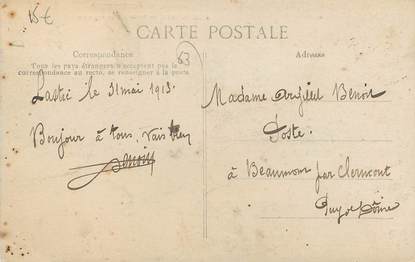 15€
CARTE POSTALE
Correspondance
63
Tous les pays étrangers n'acceptent pas la
correspondance au recto, se renseigner à la poste
Adresse
Lastic le 31 mai 1913.
Bonjour à tous, Vais bien
Benoit
Madame Benoit
Poste.
à Beaumont par Clermont
Puy de Dôme